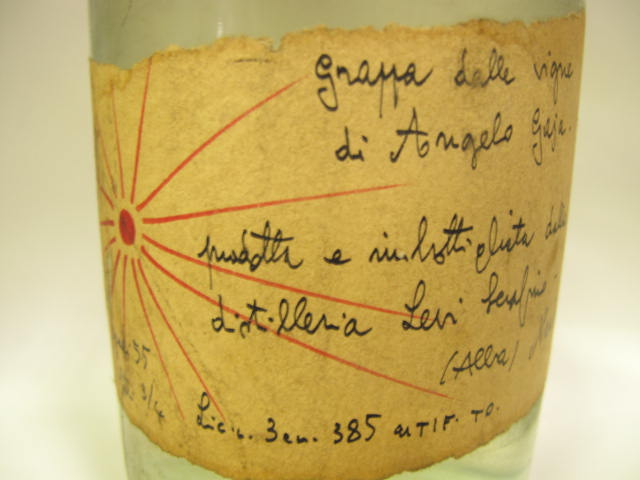 Grappa dalle vigne
di Angelo Gaja.
prodotta e imbottigliata dalla
distilleria Levi Serafino
(Alba)
55
3/4
Lic. n. 3 en. 385 UTIF. TO.